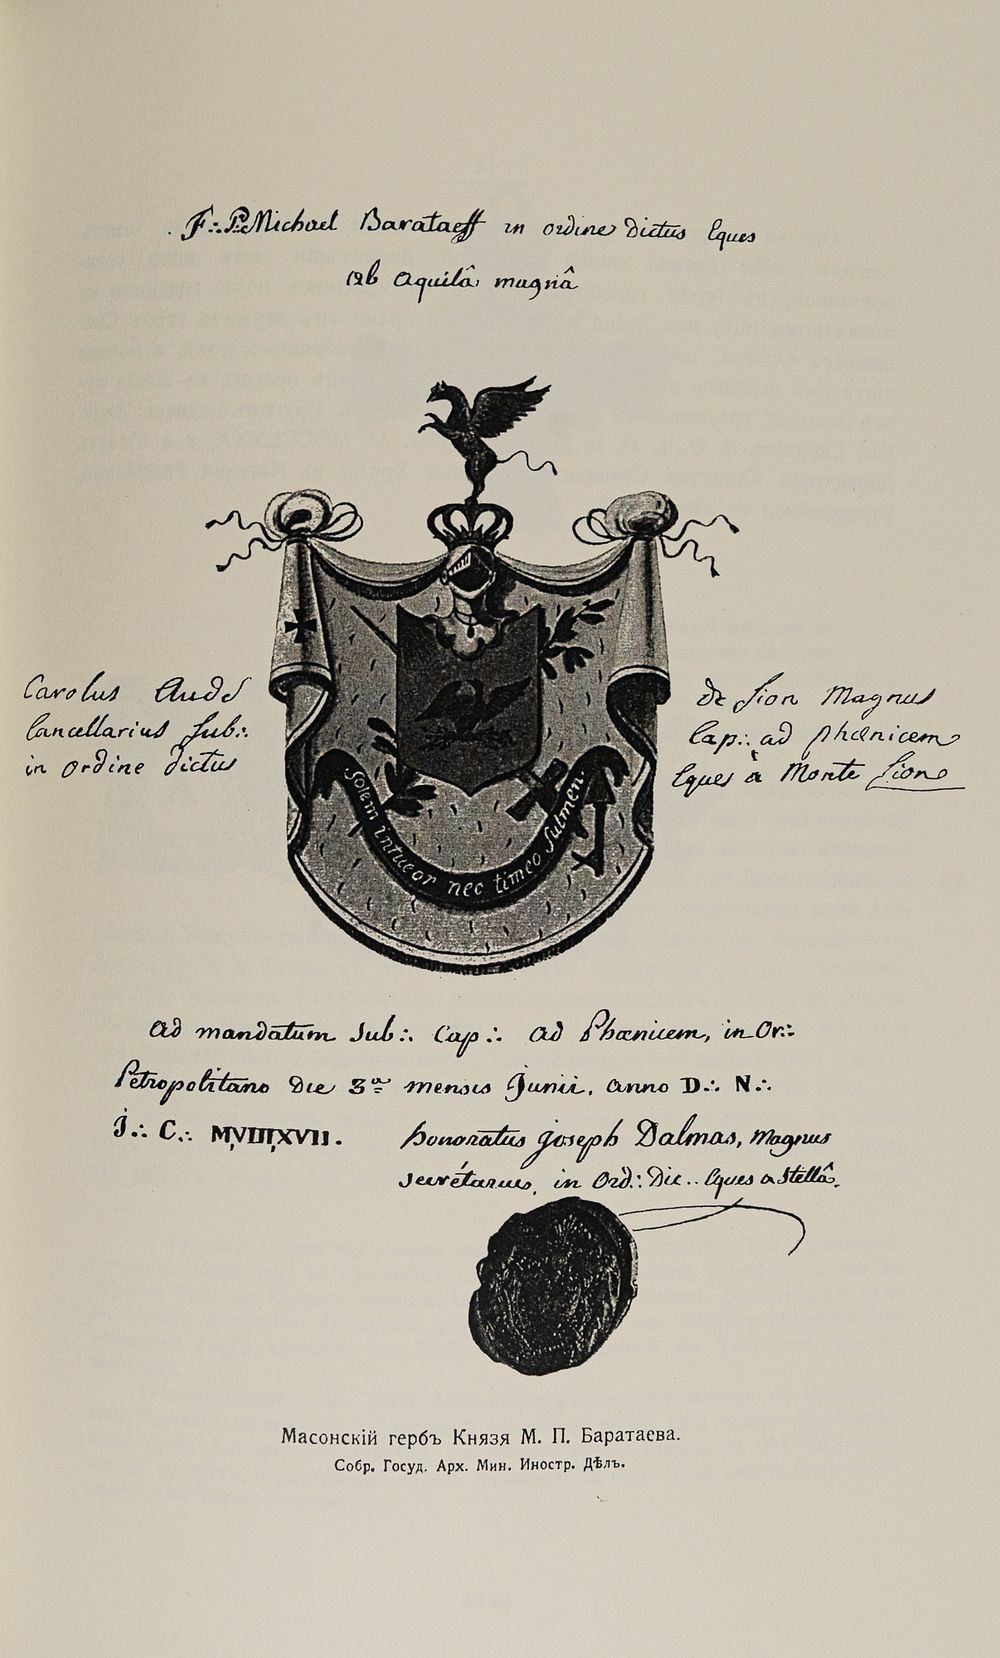 F.·. P. Michael Barataeff in ordine dictus Eques
ab Aquilâ magnâ
Carolus Aude
Cancellarius Sub.·.
in ordine dictus
de Sion Magnus
Cap.·. ad phœnicem
Eques à Monte Sion
Solem intueor nec timeo fulmen
Ad mandatum Sub.·. Cap.·. ad Phœnicem, in Or.·.
Petropolitano Die 3ª mensis Junii, anno D.·. N.·.
J.·. C.·. MVIIIXVII. honoratus Joseph Dalmas, Magnus
secrétarius, in Ord.·. Dic.. Eques a stellâ.
Масонскій гербъ Князя М. П. Баратаева.
Собр. Госуд. Арх. Мин. Иностр. Дѣлъ.